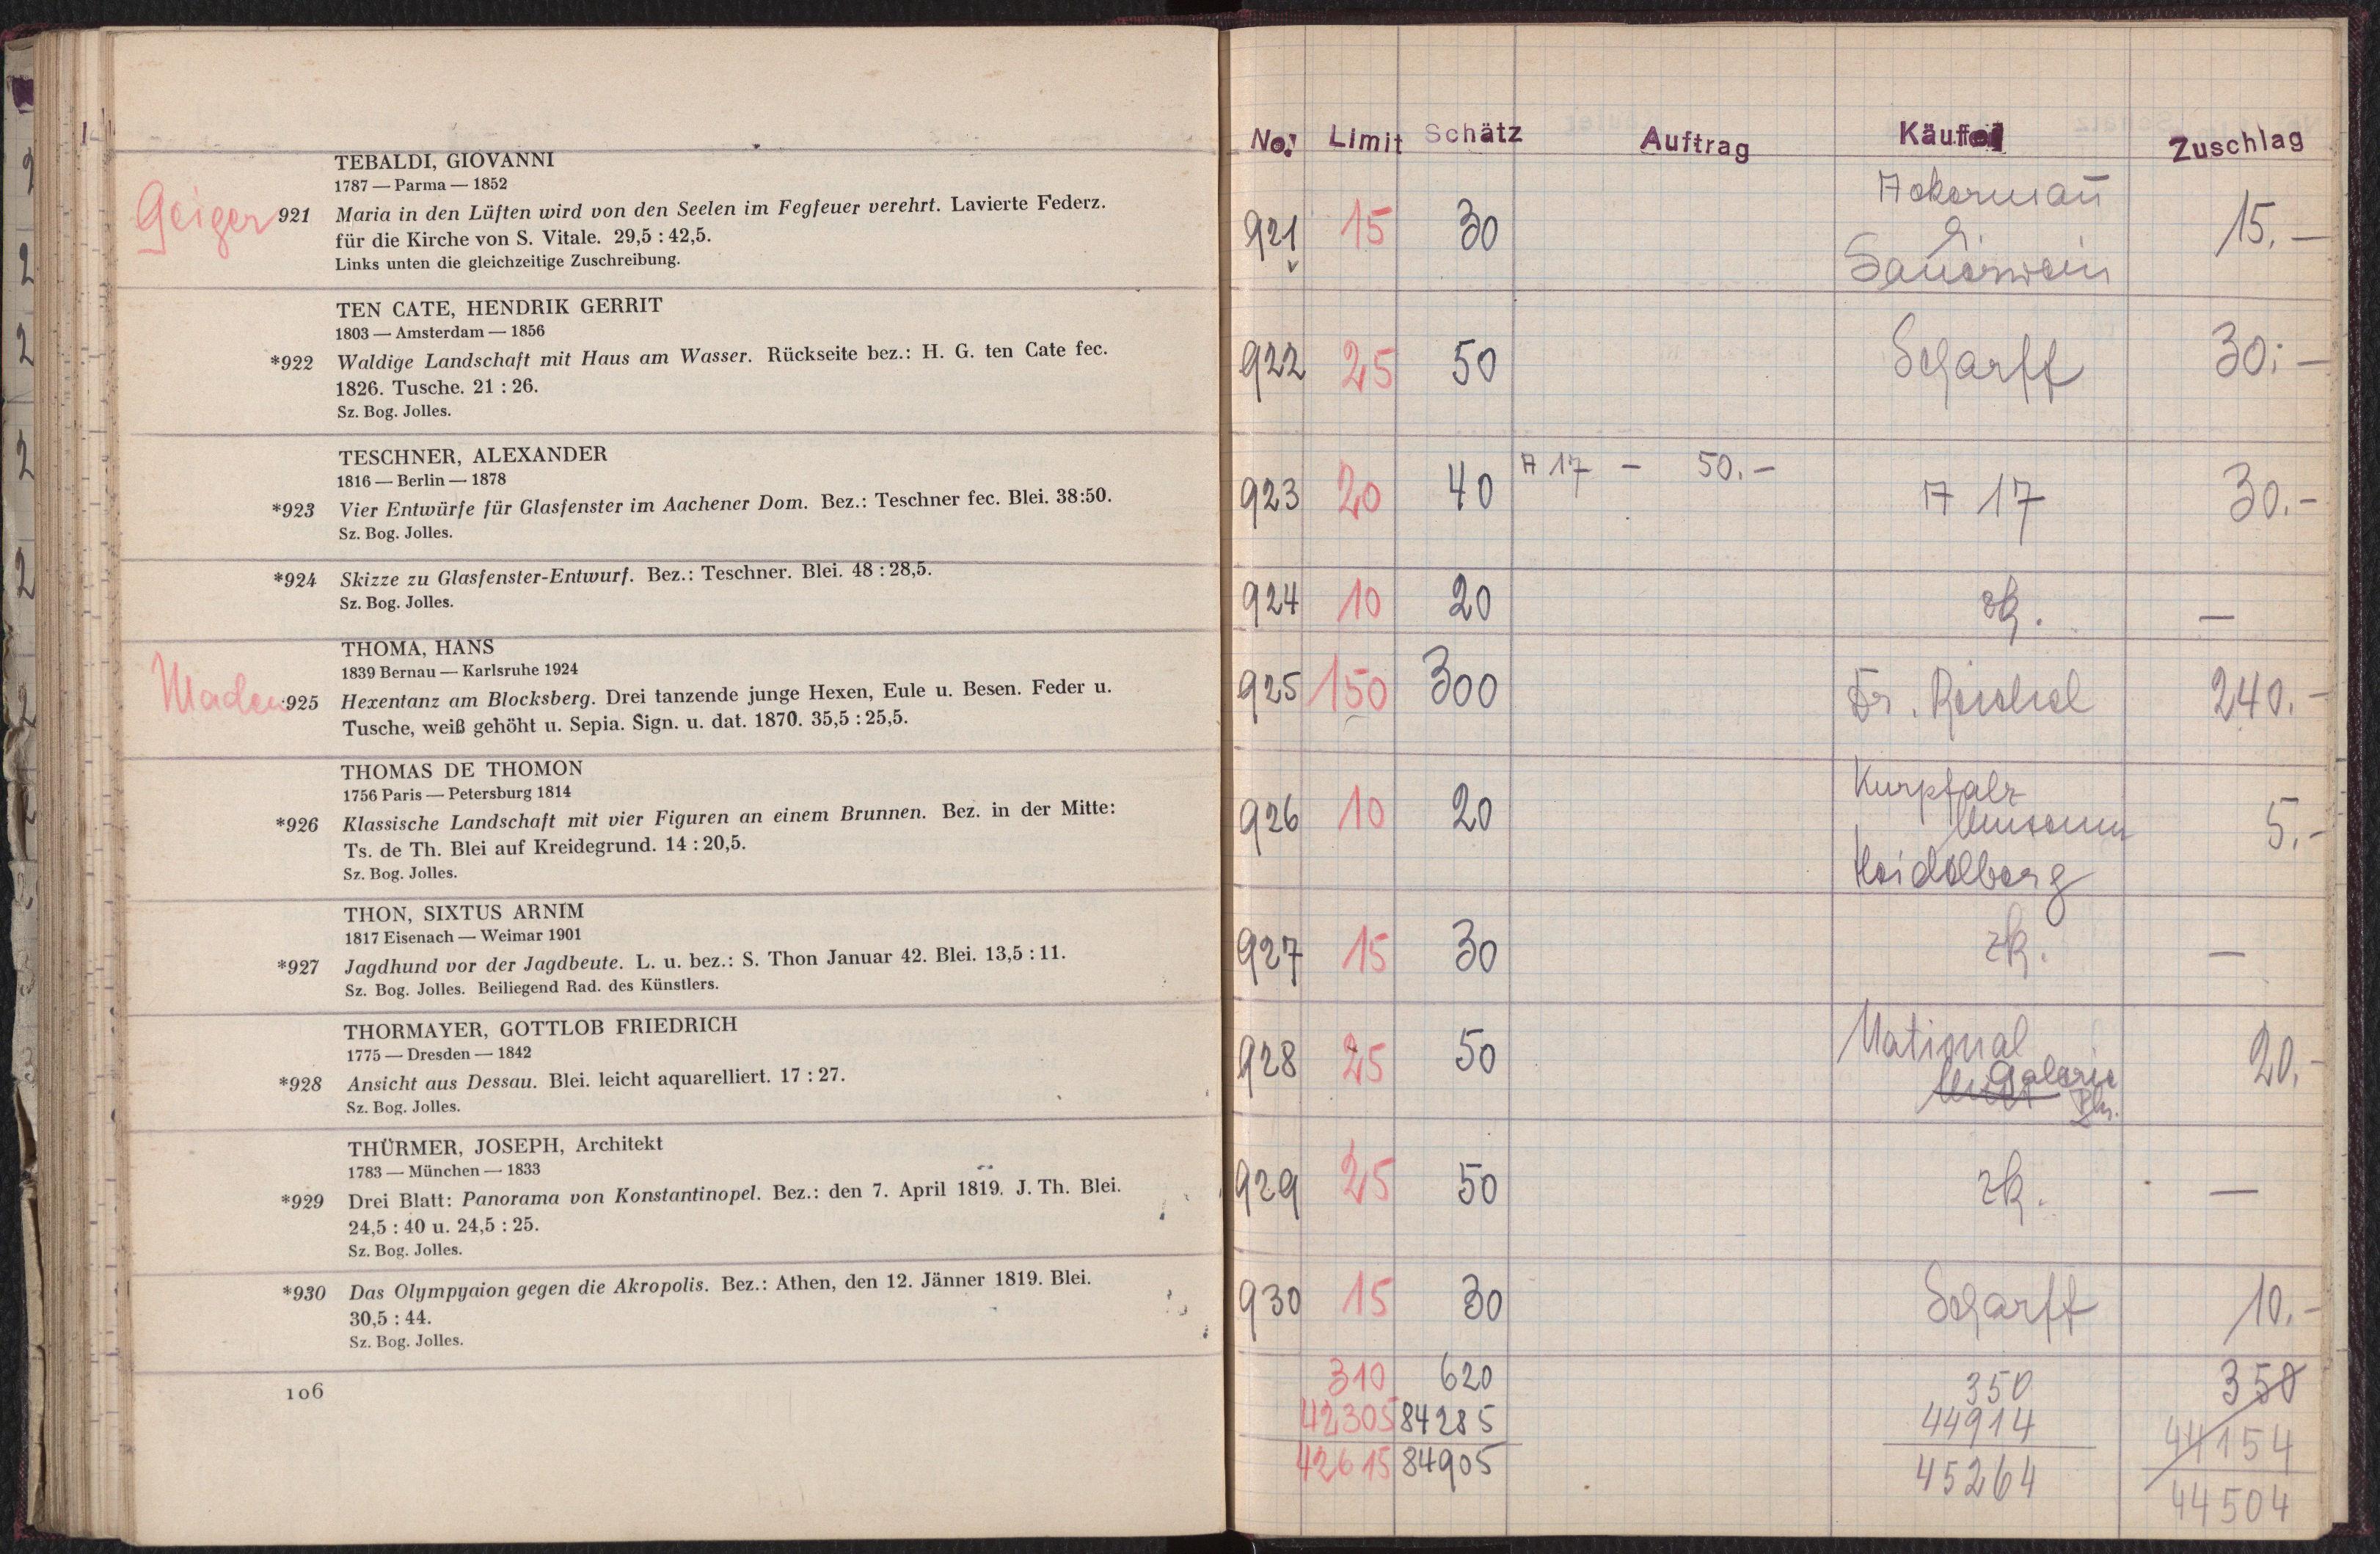 TEBALDI, GIOVANNI
1787 — Parma — 1852
Geiger 921 Maria in den Lüften wird von den Seelen im Fegfeuer verehrt. Lavierte Federz.
für die Kirche von S. Vitale. 29,5 : 42,5.
Links unten die gleichzeitige Zuschreibung.
TEN CATE, HENDRIK GERRIT
1803 — Amsterdam — 1856
*922 Waldige Landschaft mit Haus am Wasser. Rückseite bez.: H. G. ten Cate fec.
1826. Tusche. 21 : 26.
Sz. Bog. Jolles.
TESCHNER, ALEXANDER
1816 — Berlin — 1878
*923 Vier Entwürfe für Glasfenster im Aachener Dom. Bez.: Teschner fec. Blei. 38:50.
Sz. Bog. Jolles.
*924 Skizze zu Glasfenster-Entwurf. Bez.: Teschner. Blei. 48 : 28,5.
Sz. Bog. Jolles.
THOMA, HANS
1839 Bernau — Karlsruhe 1924
925 Hexentanz am Blocksberg. Drei tanzende junge Hexen, Eule u. Besen. Feder u.
Tusche, weiß gehöht u. Sepia. Sign. u. dat. 1870. 35,5 : 25,5.
THOMAS DE THOMON
1756 Paris — Petersburg 1814
*926 Klassische Landschaft mit vier Figuren an einem Brunnen. Bez. in der Mitte:
Ts. de Th. Blei auf Kreidegrund. 14 : 20,5.
Sz. Bog. Jolles.
THON, SIXTUS ARNIM
1817 Eisenach — Weimar 1901
*927 Jagdhund vor der Jagdbeute. L. u. bez.: S. Thon Januar 42. Blei. 13,5 : 11.
Sz. Bog. Jolles. Beiliegend Rad. des Künstlers.
THORMAYER, GOTTLOB FRIEDRICH
1775 — Dresden — 1842
*928 Ansicht aus Dessau. Blei. leicht aquarelliert. 17 : 27.
Sz. Bog. Jolles.
THÜRMER, JOSEPH, Architekt
1783 — München — 1833
*929 Drei Blatt: Panorama von Konstantinopel. Bez.: den 7. April 1819. J. Th. Blei.
24,5 : 40 u. 24,5 : 25.
Sz. Bog. Jolles.
*930 Das Olympyaion gegen die Akropolis. Bez.: Athen, den 12. Jänner 1819. Blei.
30,5 : 44.
Sz. Bog. Jolles.
106
No. Limit Schätz Auftrag Käufer Zuschlag
Ackermañ
921 15 30 & 15.—
Sauerwein
922 25 50 Scharff 30.—
A 17 — 50.—
923 20 40 A 17 30.—
924 10 20 zk. —
925 150 300 Dr. Reichel 240.—
Kurpfalz
926 10 20 Museum 5.—
Heidelberg
927 15 30 zk. —
National
928 25 50 Galerie 20.—
Bln.
929 25 50 zk. —
930 15 30 Scharff 10.—
310 620 350 350
42305 84285 44914 44154
42615 84905 45264 44504